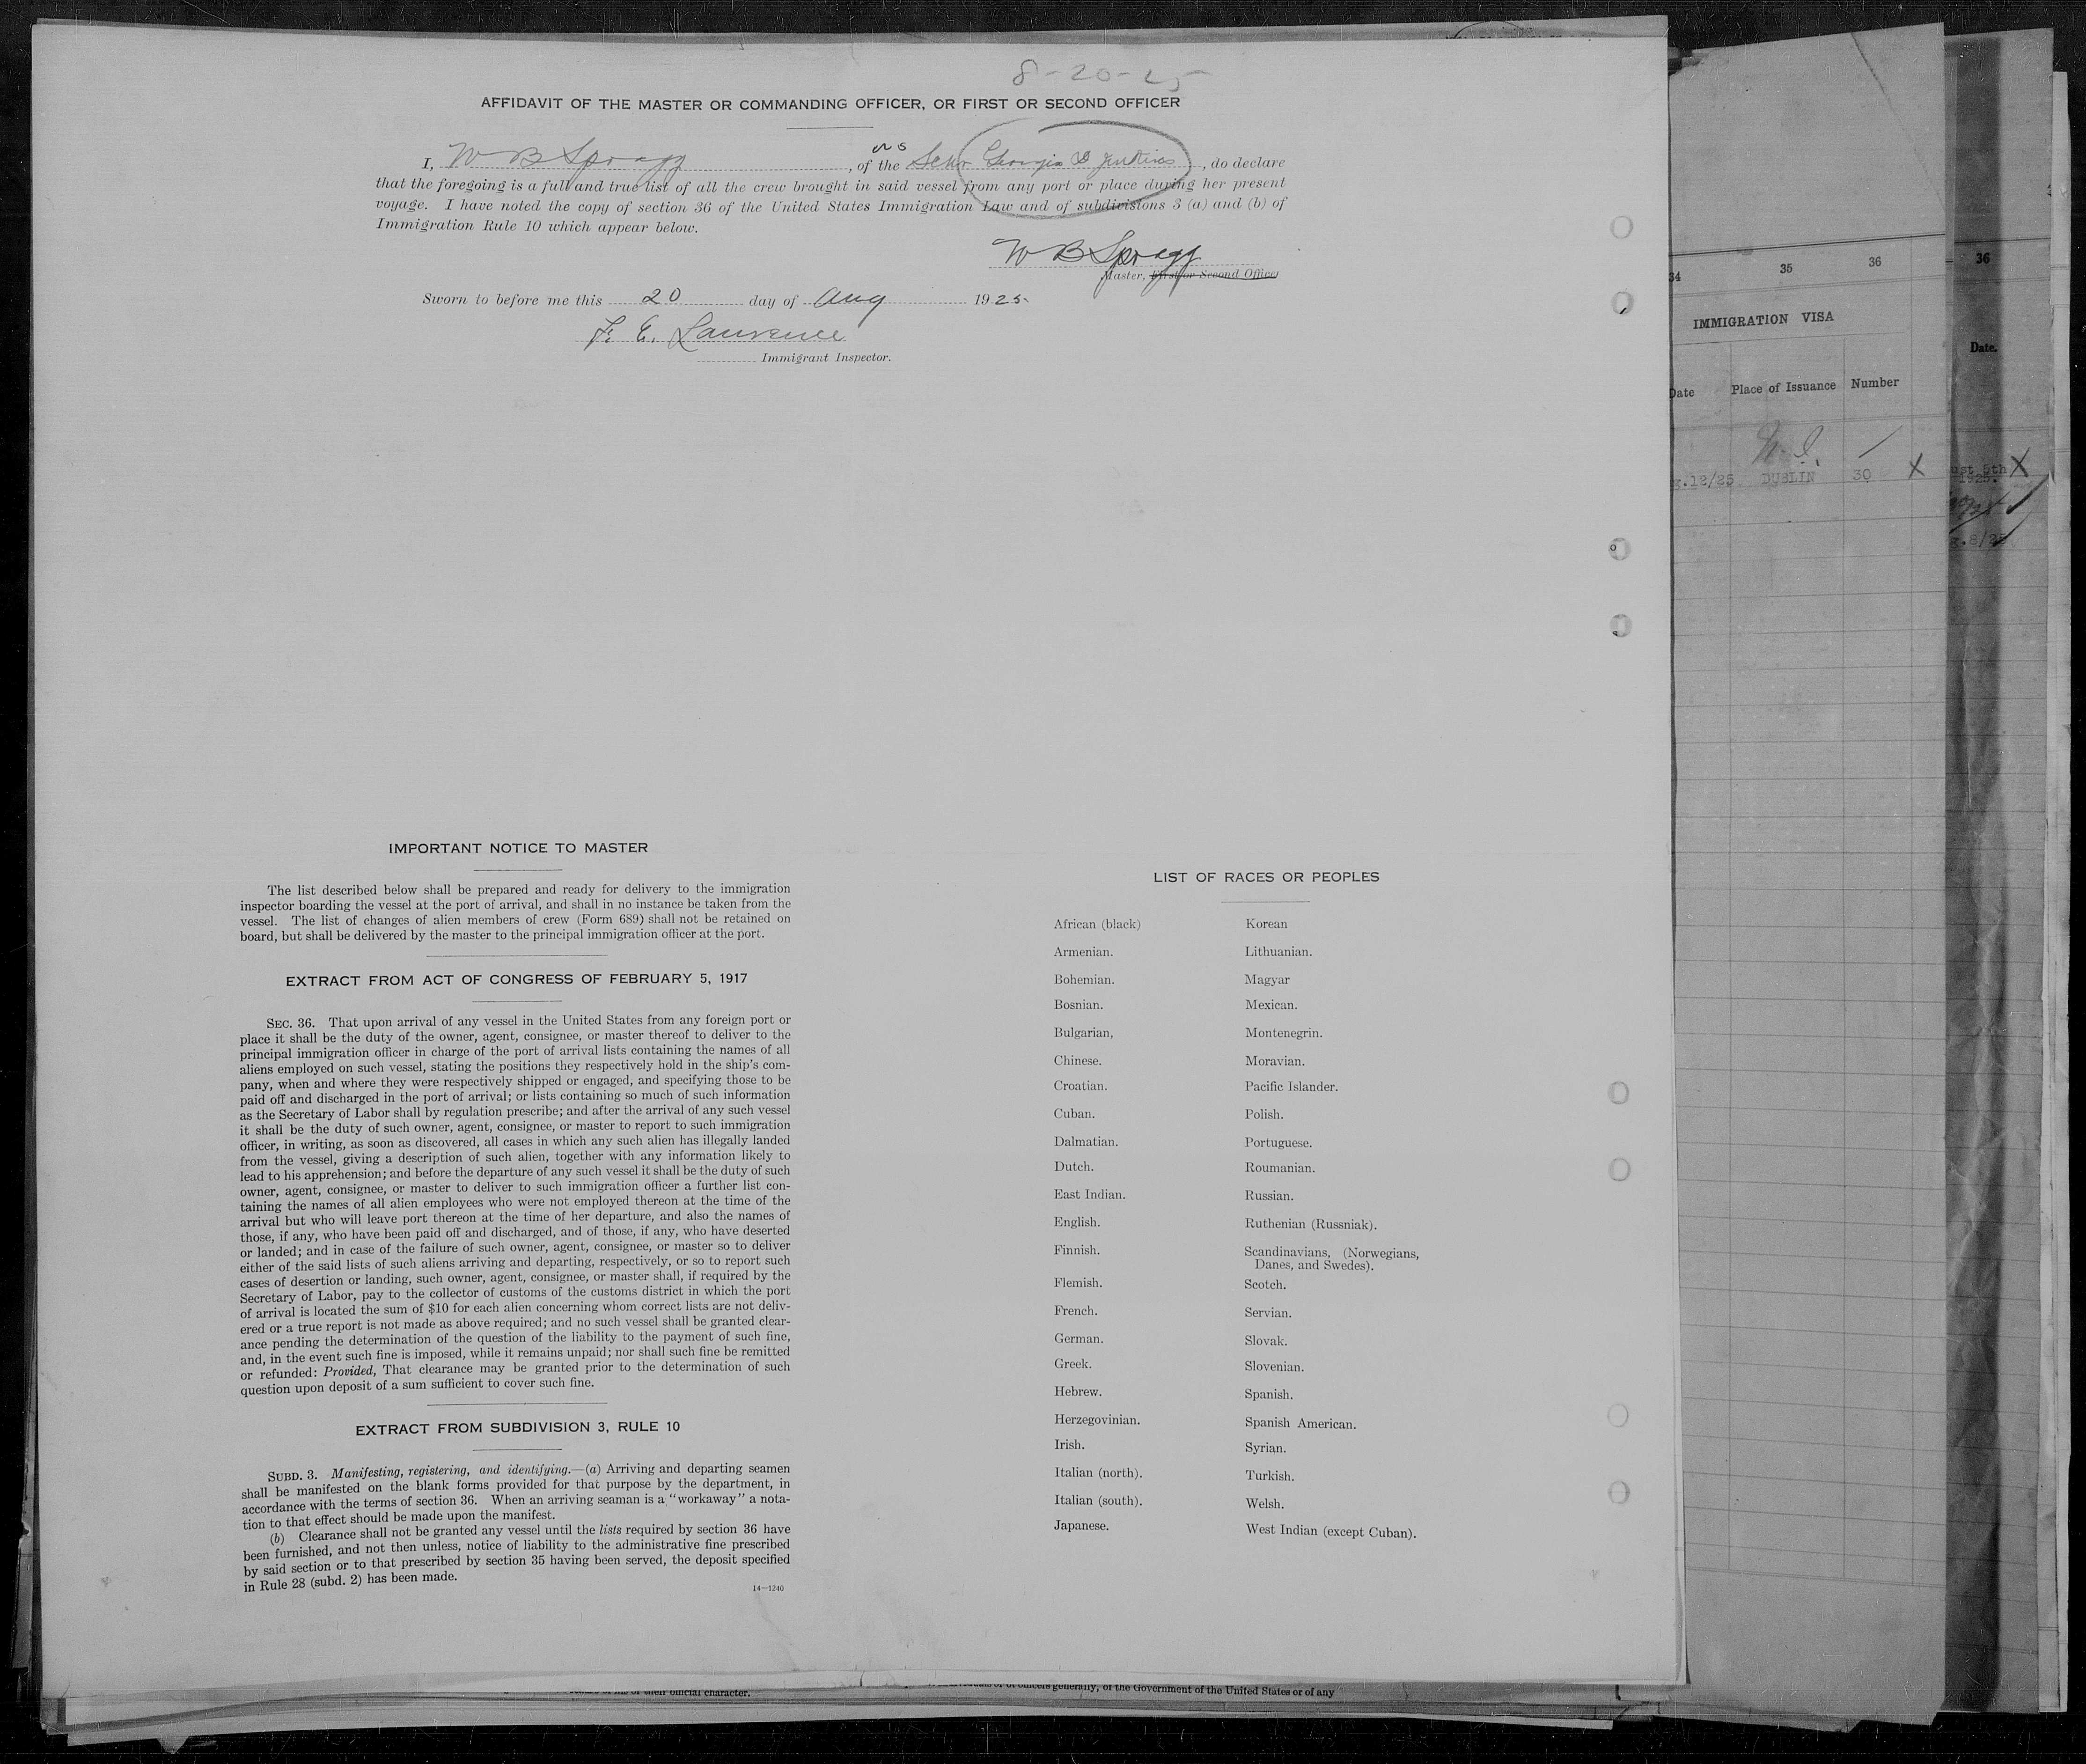 8-20-25
AFFIDAVIT OF THE MASTER OR COMMANDING OFFICER, OR FIRST OR SECOND OFFICER
I, W B Spragg, of the Schr Georgia D Jenkins, do declare
that the foregoing is a full and true list of all the crew brought in said vessel from any port or place during her present
voyage. I have noted the copy of section 36 of the United States Immigration Law and of subdivisions 3 (a) and (b) of
Immigration Rule 10 which appear below.
W B Spragg
Master, First or Second Officer
Sworn to before me this 20 day of Aug 1925.
F. E. Lawrence
Immigrant Inspector.
IMPORTANT NOTICE TO MASTER
The list described below shall be prepared and ready for delivery to the immigration
inspector boarding the vessel at the port of arrival, and shall in no instance be taken from the
vessel. The list of changes of alien members of crew (Form 689) shall not be retained on
board, but shall be delivered by the master to the principal immigration officer at the port.
EXTRACT FROM ACT OF CONGRESS OF FEBRUARY 5, 1917
SEC. 36. That upon arrival of any vessel in the United States from any foreign port or
place it shall be the duty of the owner, agent, consignee, or master thereof to deliver to the
principal immigration officer in charge of the port of arrival lists containing the names of all
aliens employed on such vessel, stating the positions they respectively hold in the ship's com-
pany, when and where they were respectively shipped or engaged, and specifying those to be
paid off and discharged in the port of arrival; or lists containing so much of such information
as the Secretary of Labor shall by regulation prescribe; and after the arrival of any such vessel
it shall be the duty of such owner, agent, consignee, or master to report to such immigration
officer, in writing, as soon as discovered, all cases in which any such alien has illegally landed
from the vessel, giving a description of such alien, together with any information likely to
lead to his apprehension; and before the departure of any such vessel it shall be the duty of such
owner, agent, consignee, or master to deliver to such immigration officer a further list con-
taining the names of all alien employees who were not employed thereon at the time of the
arrival but who will leave port thereon at the time of her departure, and also the names of
those, if any, who have been paid off and discharged, and of those, if any, who have deserted
or landed; and in case of the failure of such owner, agent, consignee, or master so to deliver
either of the said lists of such aliens arriving and departing, respectively, or so to report such
cases of desertion or landing, such owner, agent, consignee, or master shall, if required by the
Secretary of Labor, pay to the collector of customs of the customs district in which the port
of arrival is located the sum of $10 for each alien concerning whom correct lists are not deliv-
ered or a true report is not made as above required; and no such vessel shall be granted clear-
ance pending the determination of the question of the liability to the payment of such fine,
and, in the event such fine is imposed, while it remains unpaid; nor shall such fine be remitted
or refunded: Provided, That clearance may be granted prior to the determination of such
question upon deposit of a sum sufficient to cover such fine.
EXTRACT FROM SUBDIVISION 3, RULE 10
SUBD. 3. Manifesting, registering, and identifying.—(a) Arriving and departing seamen
shall be manifested on the blank forms provided for that purpose by the department, in
accordance with the terms of section 36. When an arriving seaman is a "workaway" a nota-
tion to that effect should be made upon the manifest.
(b) Clearance shall not be granted any vessel until the lists required by section 36 have
been furnished, and not then unless, notice of liability to the administrative fine prescribed
by said section or to that prescribed by section 35 having been served, the deposit specified
in Rule 28 (subd. 2) has been made.
14-1240
LIST OF RACES OR PEOPLES
African (black)
Armenian.
Bohemian.
Bosnian.
Bulgarian,
Chinese.
Croatian.
Cuban.
Dalmatian.
Dutch.
East Indian.
English.
Finnish.
Flemish.
French.
German.
Greek.
Hebrew.
Herzegovinian.
Irish.
Italian (north).
Italian (south).
Japanese.
Korean
Lithuanian.
Magyar
Mexican.
Montenegrin.
Moravian.
Pacific Islander.
Polish.
Portuguese.
Roumanian.
Russian.
Ruthenian (Russniak).
Scandinavians, (Norwegians,
Danes, and Swedes).
Scotch.
Servian.
Slovak.
Slovenian.
Spanish.
Spanish American.
Syrian.
Turkish.
Welsh.
West Indian (except Cuban).
34 35 36
IMMIGRATION VISA
Date Place of Issuance Number
.12/25 DUBLIN 30 X
36
Date.
5th X
1925.
.8/25
their official character.
generally, of the Government of the United States or of any